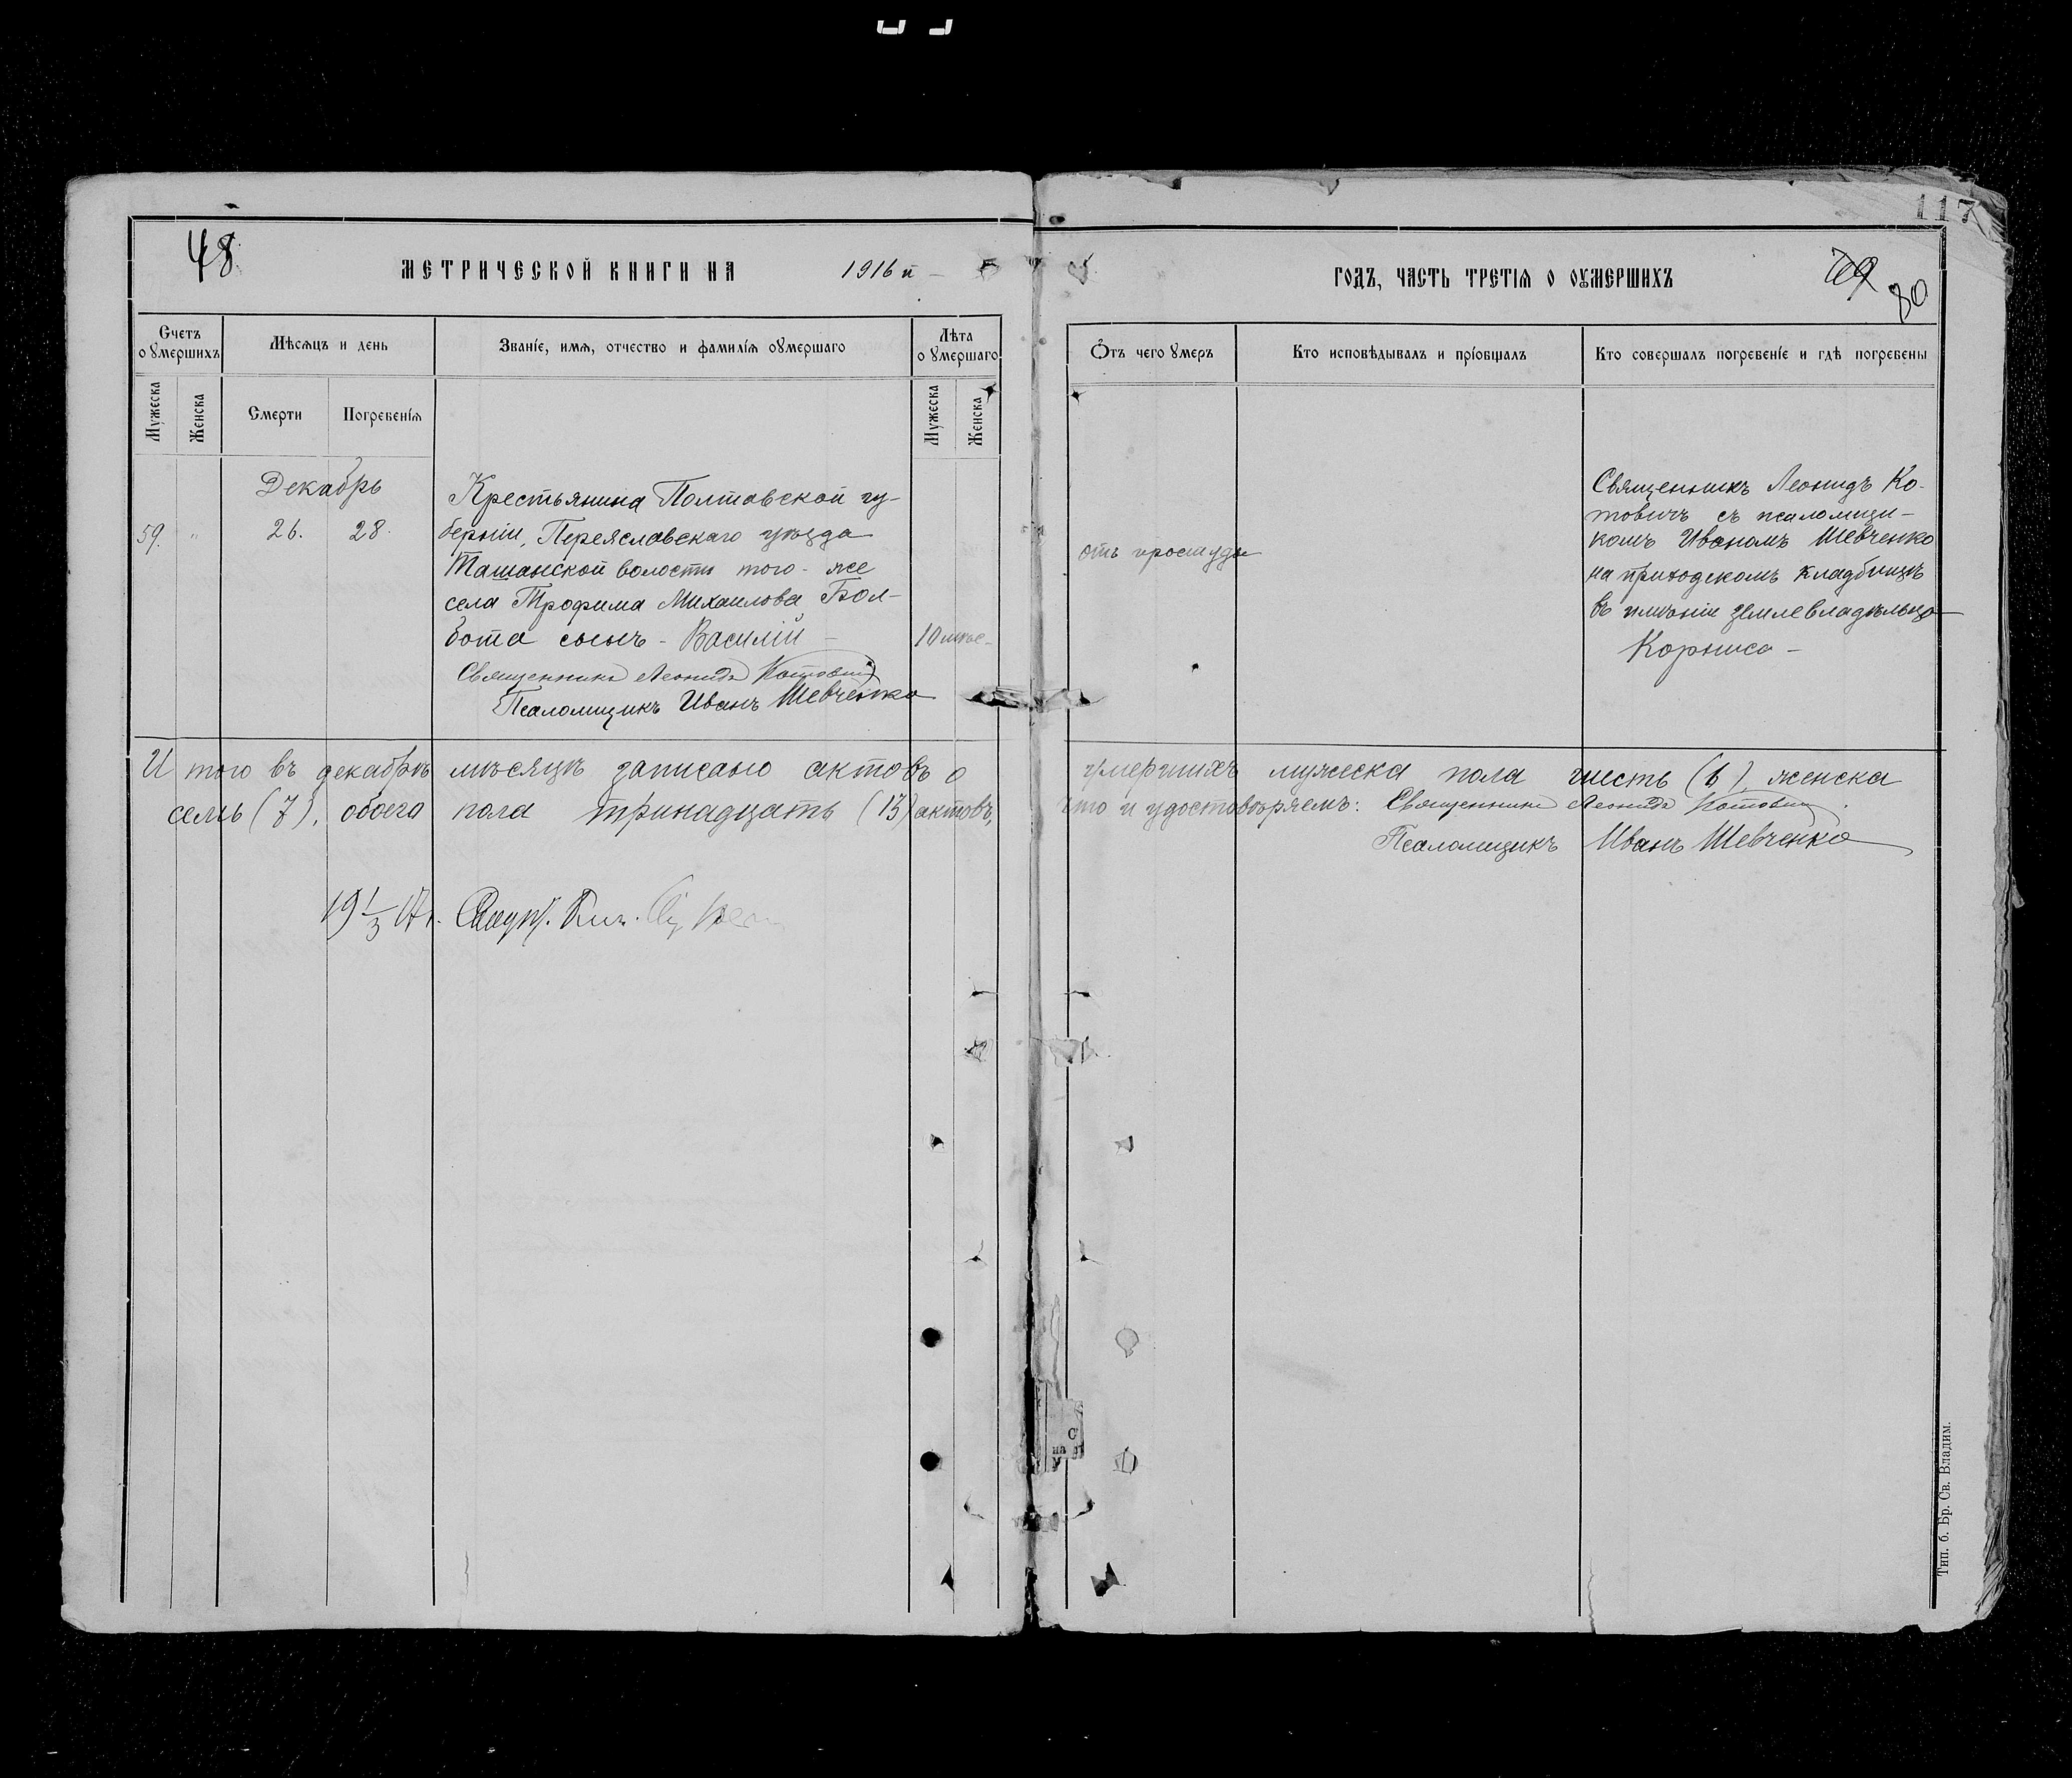 117
48
МЕТРИЧЕСКОЙ КНИГИ НА 1916 й
ГОДЪ, ЧАСТЬ ТРЕТІЯ О ОУМЕРШИХЪ
80
Счетъ о умершихъ
Мѣсяцъ и день
Званіе, имя, отчество и фамилія оумершаго
Лѣта о умершаго
Мужеска
Женска
Смерти
Погребенія
Мужеска
Женска
Отъ чего умеръ
Кто исповѣдывалъ и пріобщалъ
Кто совершалъ погребеніе и гдѣ погребены
Декабрь
59. " 26. 28.
Крестьянина Полтавской гу-
берніи, Переяславскаго уѣзда
Ташанской волости того-же
села Трофима Михаилова Бол-
бота сынъ - Василій -
10 мѣс-
Священникъ Леонидъ Котовичъ
Псаломщикъ Иванъ Шевченко
отъ простуды
Священникъ Леонидъ Ко-
товичъ съ псаломщи-
комъ Иваномъ Шевченко
на приходскомъ кладбищѣ
въ имѣніи землевладѣльца
Корниса -
Итого въ декабрѣ мѣсяцѣ записано актовъ о умершихъ мужеска пола шесть (6), женска
семь (7), обоего пола тринадцать (13) актовъ, что и удостовѣряемъ: Священникъ Леонидъ Котовичъ
Псаломщикъ Иванъ Шевченко
19 1/3 17 г.
Тип. б. Бр. Св. Владим.